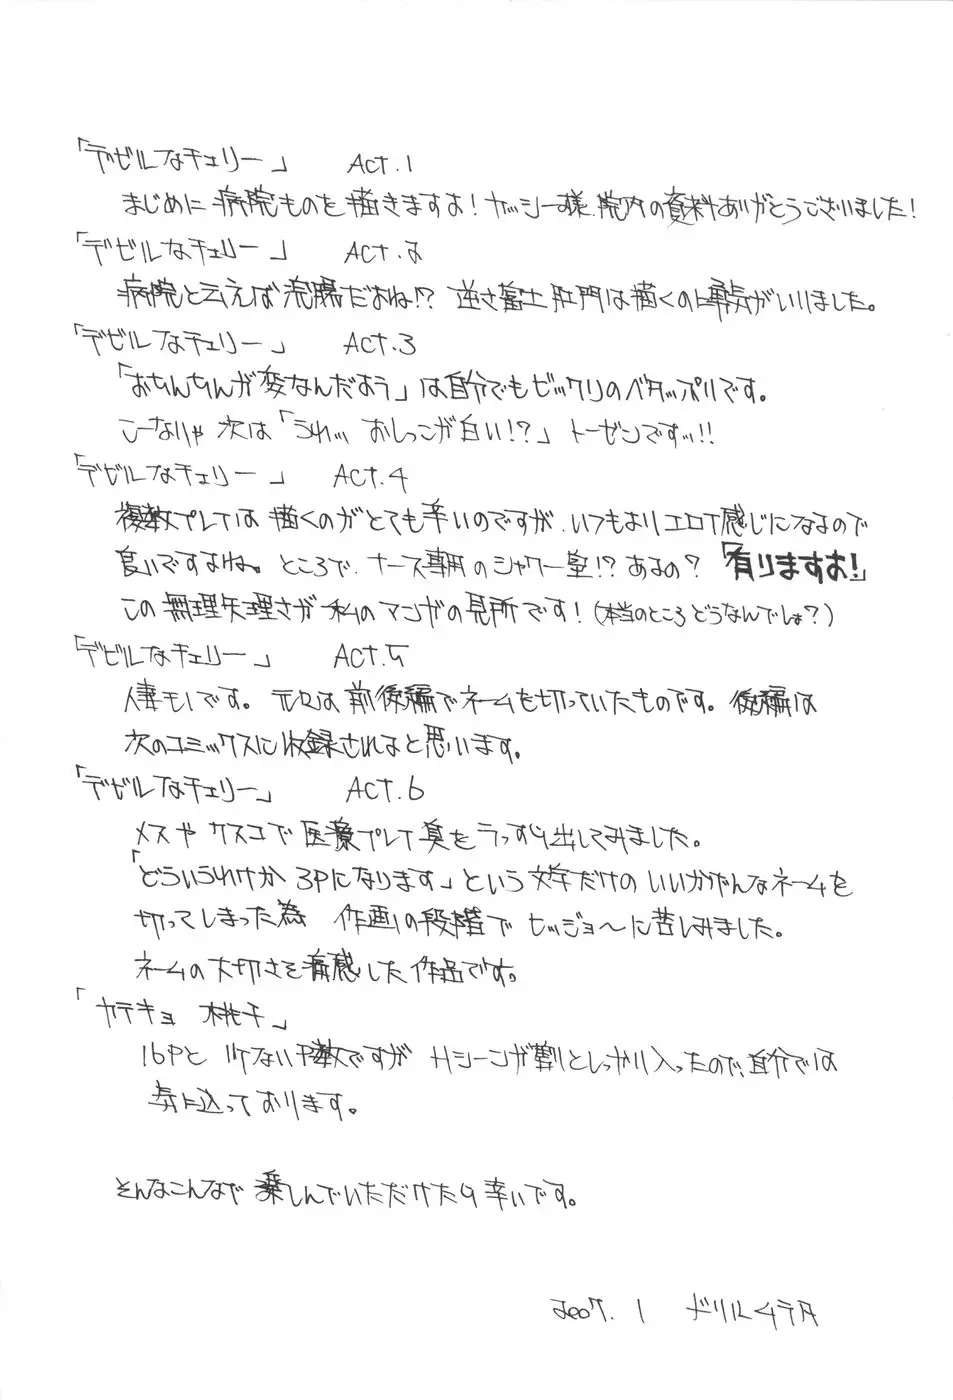 「デビルなチェリー」 Act.1
まじめに病院ものを描きますよ！ヤッシー様、院内の資料ありがとうございました！
「デビルなチェリー」 Act.2
病院と云えば浣腸だよね!? 逆さ富士肛門は描くのに勇気がいりました。
「デビルなチェリー」 Act.3
「おちんちんが変なんだよう」は自分でもビックリのベタップリです。
こーなりゃ次は「うわっ おしっこが白い!?」トーゼンですッ!!
「デビルなチェリー」 Act.4
複数プレイは描くのがとても辛いのですが、いつもよりエロイ感じになるので
良いですよね。ところで、ナース専用のシャワー室!? あるの？「有りますよ!」
この無理矢理さが私のマンガの見所です！(本当のところどうなんでしょ？)
「デビルなチェリー」 Act.5
人妻モノです。元々は前後編でネームを切っていたものです。後編は
次のコミックスに収録されると思います。
「デビルなチェリー」 Act.6
メスやクスコで医療プレイ臭をうっすら出してみました。
「どういうわけか3Pになります」という文字だけのいいかげんなネームを
切ってしまった為 作画の段階でヒッジョ〜に苦しみました。
ネームの大切さを痛感した作品です。
「カテキョ 桃子」
16Pと少ないP数ですがHシーンが割としっかり入ったので、自分では
気に入っております。
そんなこんなで楽しんでいただけたら幸いです。
2007.1 ドリルムラタ